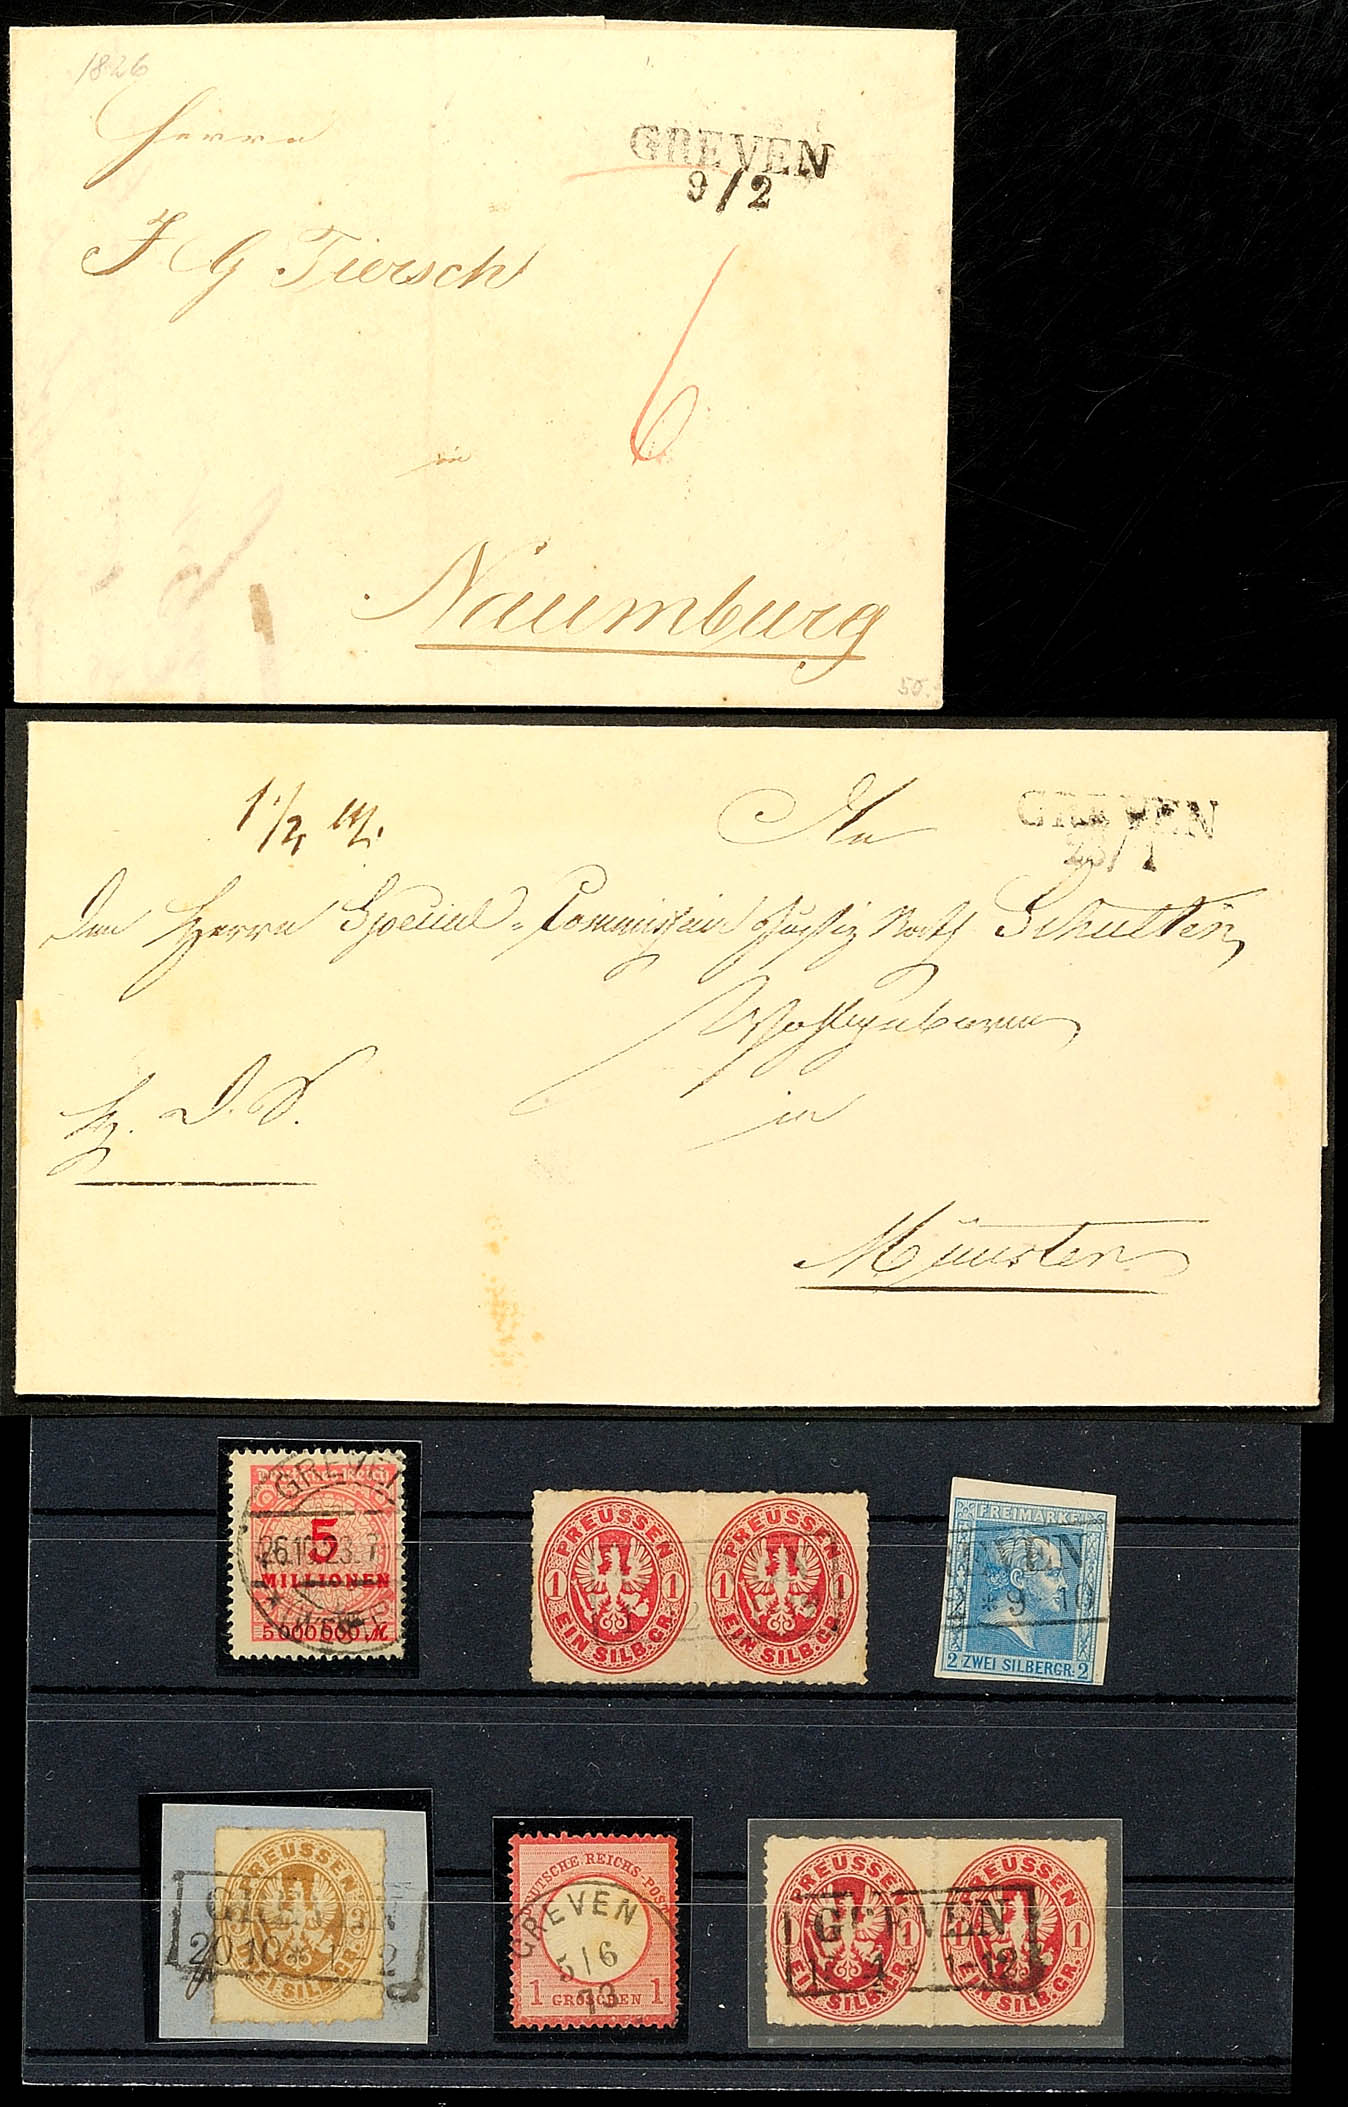 1826
Herrn
GREVEN
9/2
J G Tiersch
6
in
Naumburg
50.
1 1/2
An
GREVEN
23/1
Den Herrn Special-Commissair Justiz Rath Schulten,
Wohlgeboren
in
H. D. S.
Münster
Deutsches Reich
GREVEN
5
MILLIONEN
5000000 M
PREUSSEN
1 1
EIN SILB.GR.
PREUSSEN
1 1
EIN SILB.GR.
FREIMARKE
EVEN
2 * 9-10
2 ZWEI SILBERGR. 2
PREUSSEN
GREVEN
20 10 * 1 2
ZWEI SILB.GR.
DEUTSCHE REICHS-POST
GREVEN
5/6
73
1 GROSCHEN 1
PREUSSEN
PREUSSEN
1 1 1
GREVEN
4 * 1-12
EIN SILB.GR.
EIN SILB.GR.